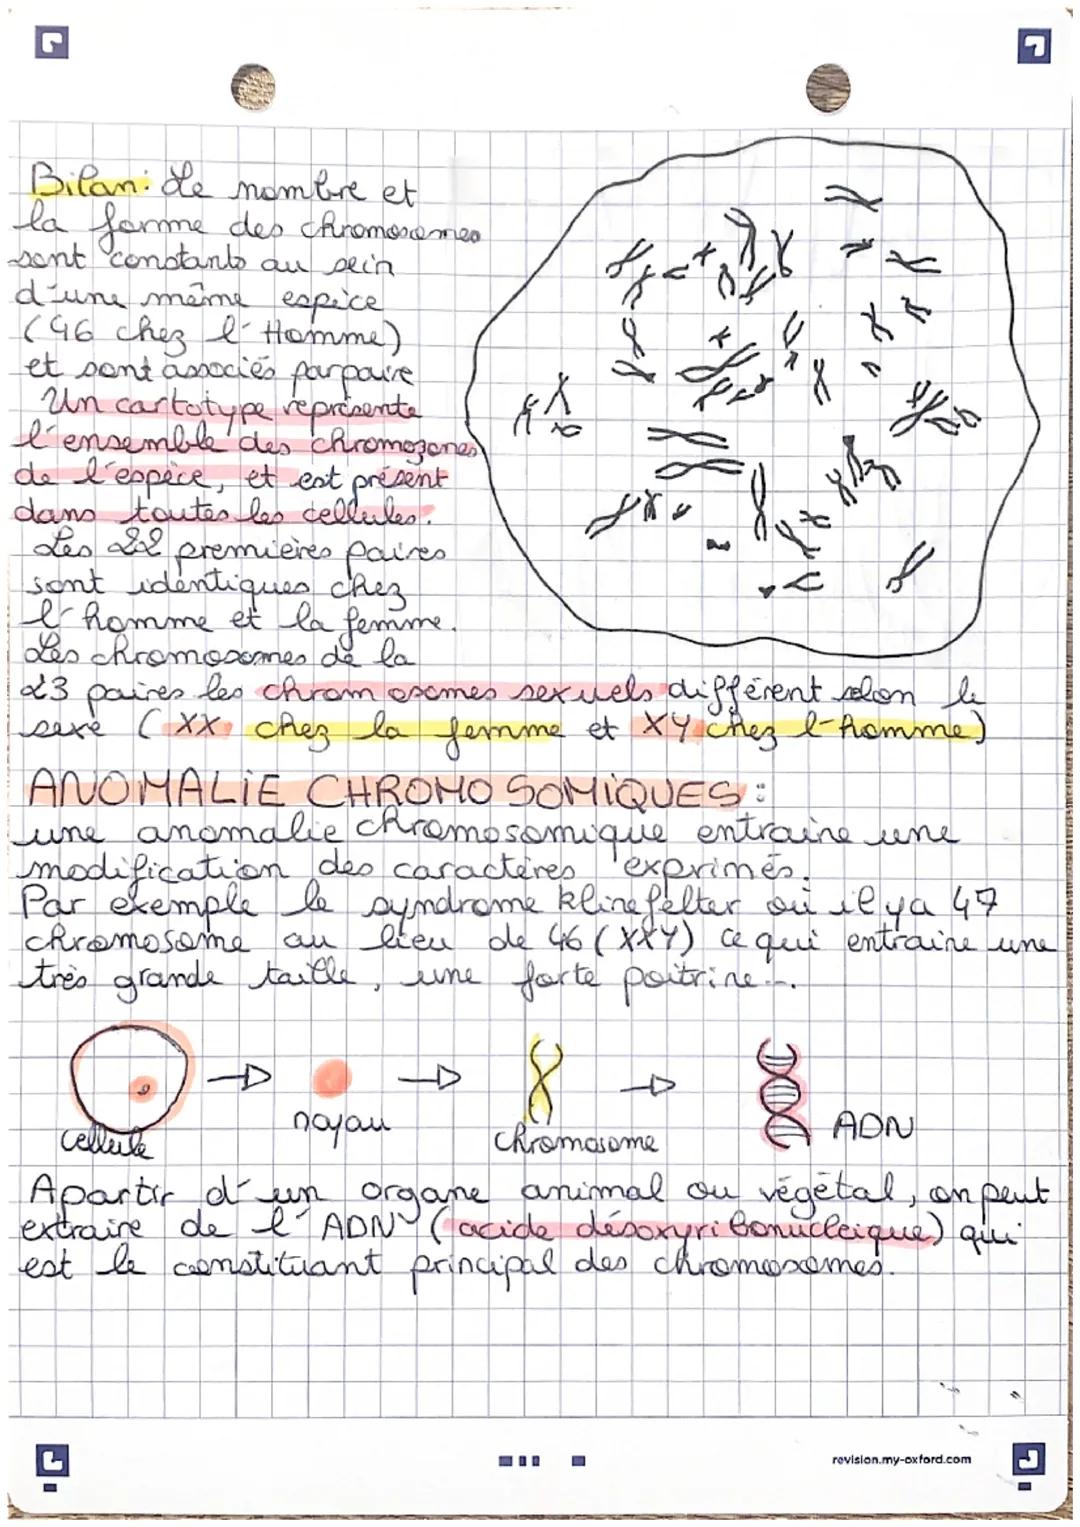 Bilan: Le nombre et
la forme des chromosomes
sont constants au sein
d'une même espèce
(46 chez l'Homme)
et sont associés par paire
Un cartotype représente
l'ensemble des chromozones
de l'espèce, et est présent
dans toutes les cellules.
Les 22 premières paires
sont identiques chez
l'homme et la femme.
Les chromosomes de la
23 paires les chromosomes sexuels différent selon le
sexe (XX chez la femme et XY chez l'homme)
ANOMALIE CHROMOSOMIQUES :
une anomalie chromosomique entraine une
modification des caractères exprimés.
Par exemple le syndrome klinefelter où il y a 47
chromosome au lieu de 46 (XXY) ce qui entraine une
très grande taille, une forte poitrine...
cellule
noyau
chromosome
ADN
Apartir d'un organe animal ou végétal, on peut
extraire de l'ADN (acide désoxyribonucleique) qui
est le constituant principal des chromosomes.
revision.my-oxford.com